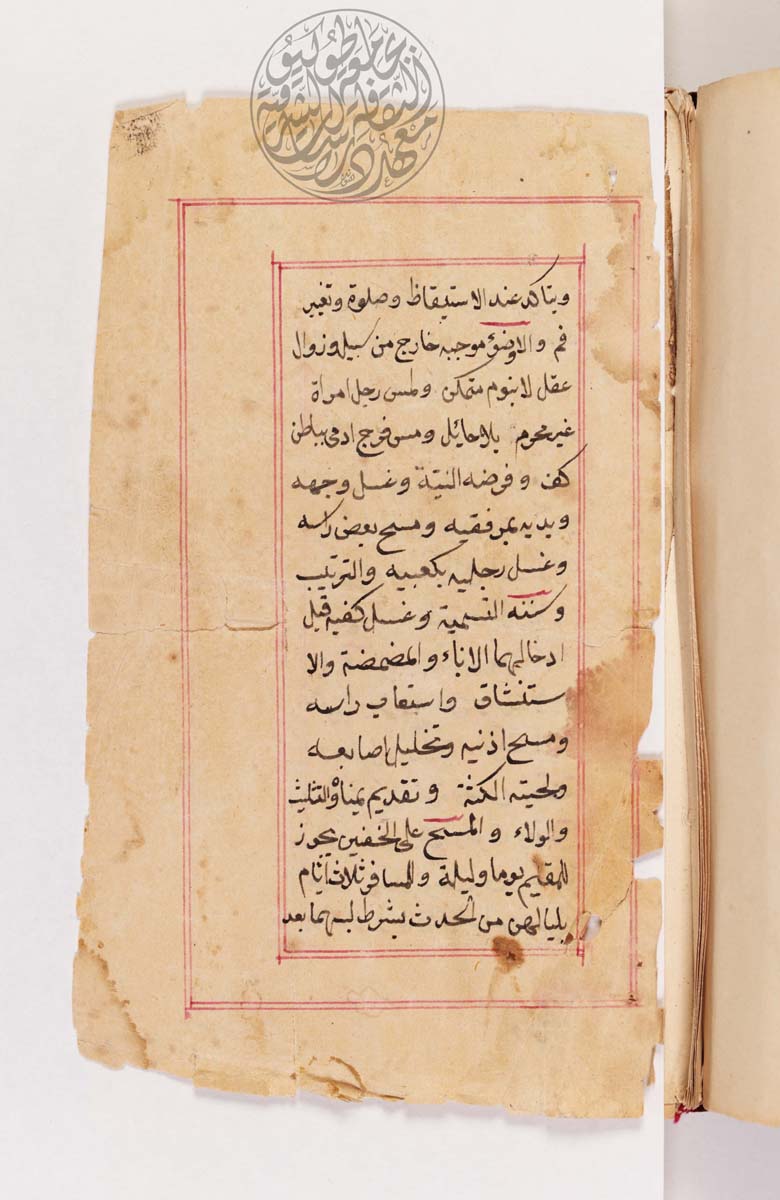 ويتاكد عند الاستيقاظ وصلوة وتغير
فم والاوضوء موجبه خارج من سبيل وزوال
عقل لا بنوم متمكن ولمس رجل امراة
غير محرم بلا حائل ومس فرج ادمى بباطن
كف وفرضه النية وغسل وجهه
ويديه بمرفقيه ومسح بعض راسه
وغسل رجليه بكعبيه والترتيب
وسننه التسمية وغسل كفيه قبل
ادخالهما الاناء والمضمضة والا
ستنشاق واستعاب راسه
ومسح اذنيه وتخليل اصابعه
ولحيته الكثة وتقديم يمناه والتثليث
والولاء والمسح على الخفين يجوز
للمقيم يوما وليلة وللمسافر ثلاث ايام
بلياليهن من الحدث بشرط لبسهما بعد